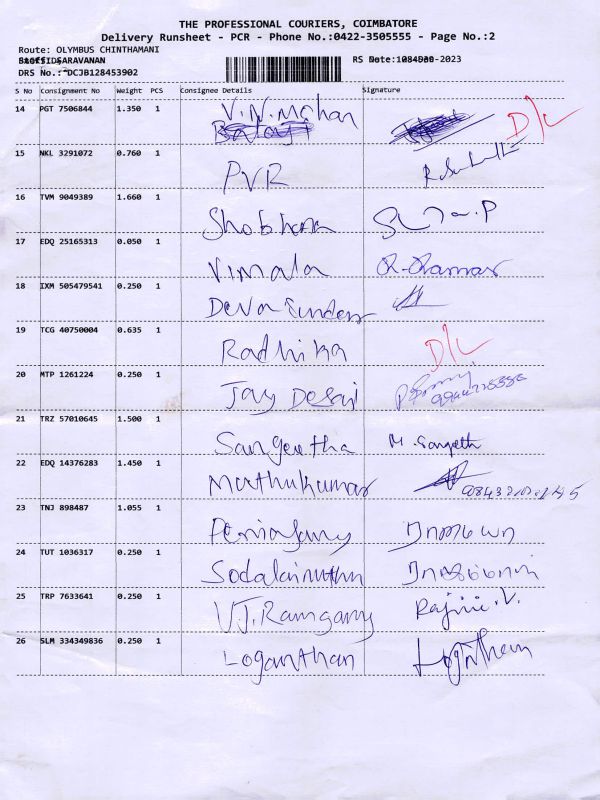 THE PROFESSIONAL COURIERS, COIMBATORE
Delivery Runsheet - PCR - Phone No.:0422-3505555 - Page No.:2
Route: OLYMBUS CHINTHAMANI
SARAVANAN RS Date: -2023
DRS No.: DCJB128453902
S No Consignment No Weight PCS Consignee Details Signature
14 PGT 7506844 1.350 1 V.N.Mohan D/L
15 NKL 3291072 0.760 1 PVR
16 TVM 9049389 1.660 1 Shobhana
17 EDQ 25165313 0.050 1 Vimala
18 IXM 505479541 0.250 1 Deva Sundar
19 TCG 40750004 0.635 1 Radhika D/L
20 MTP 1261224 0.250 1 Jay Desai
21 TRZ 57010645 1.500 1 Sangeetha M. Sangeeth
22 EDQ 14376283 1.450 1 Muthukumar
23 TNJ 898487 1.055 1
24 TUT 1036317 0.250 1
25 TRP 7633641 0.250 1 V.J.Ramgamy Rajini.V.
26 SLM 334349836 0.250 1 Loganthan